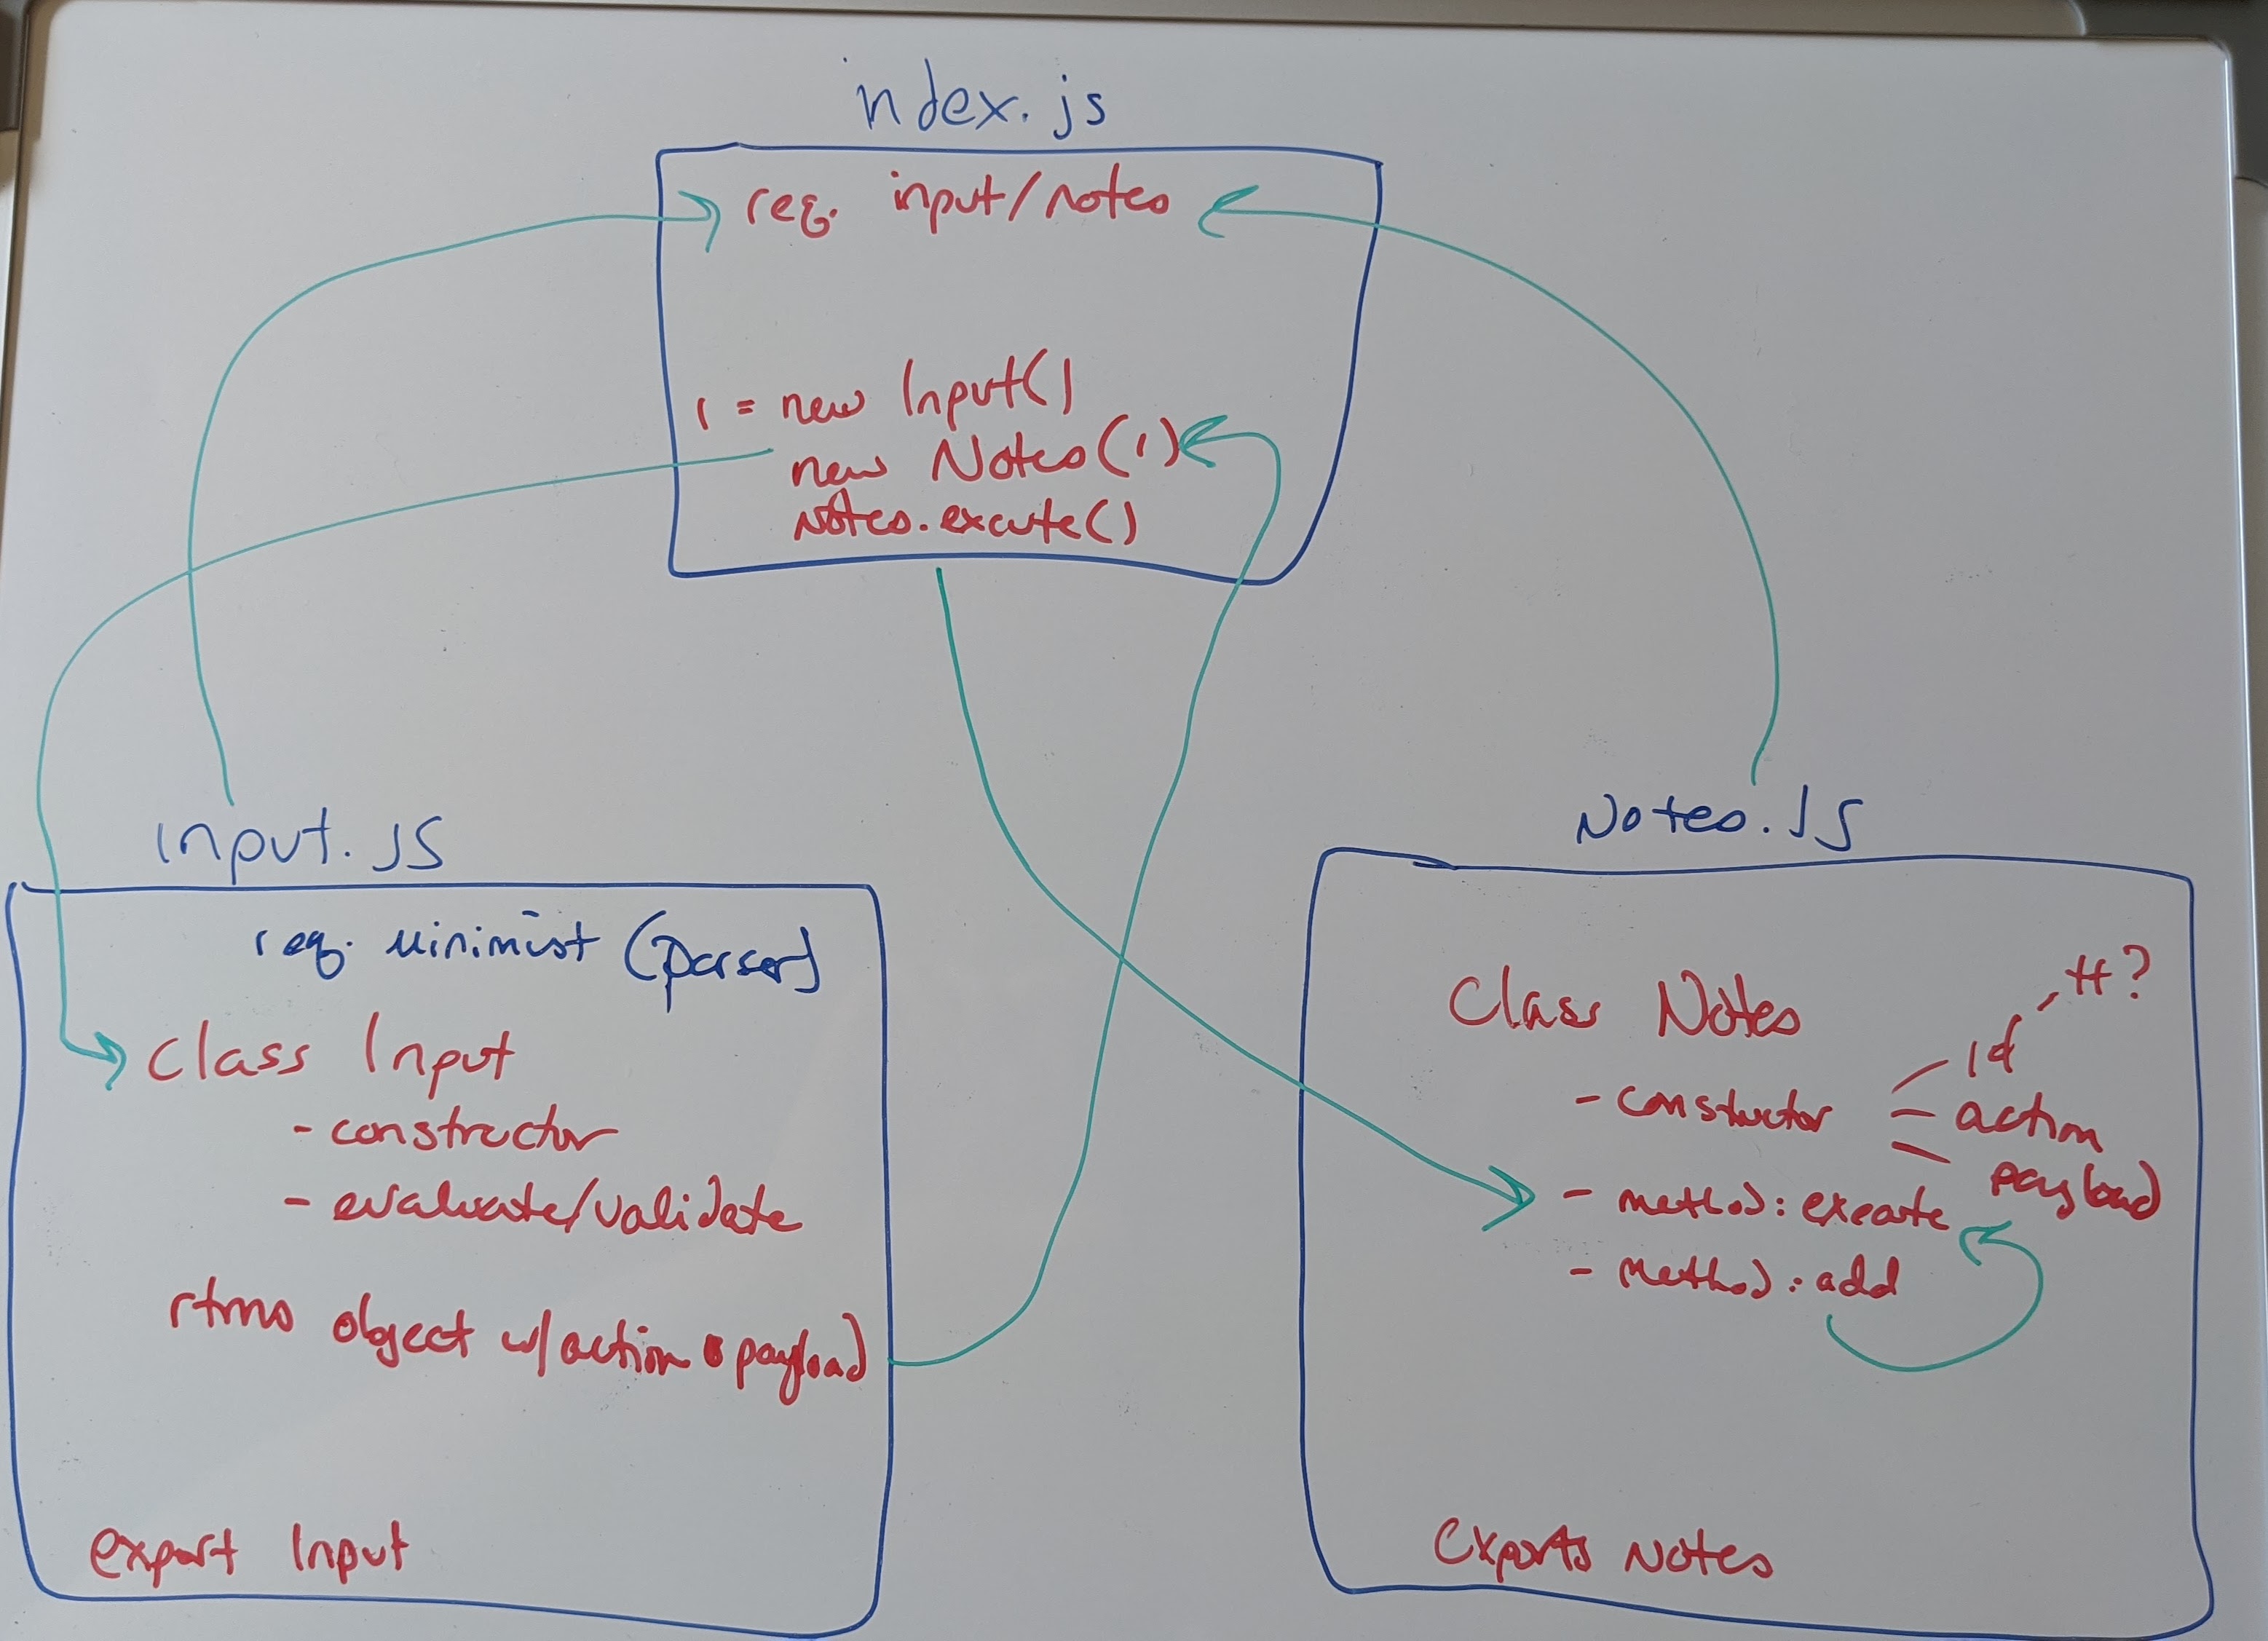 index.js
req. input/notes
i = new Input()
new Notes(i)
Notes.execute()
input.JS
req. minimist (parser)
class Input
- constructor
- evaluate/validate
rtrns object w/action & payload
export Input
Notes.JS
Class Notes
#?
- constructor
id
action
payload
- method: execute
- method: add
exports Notes